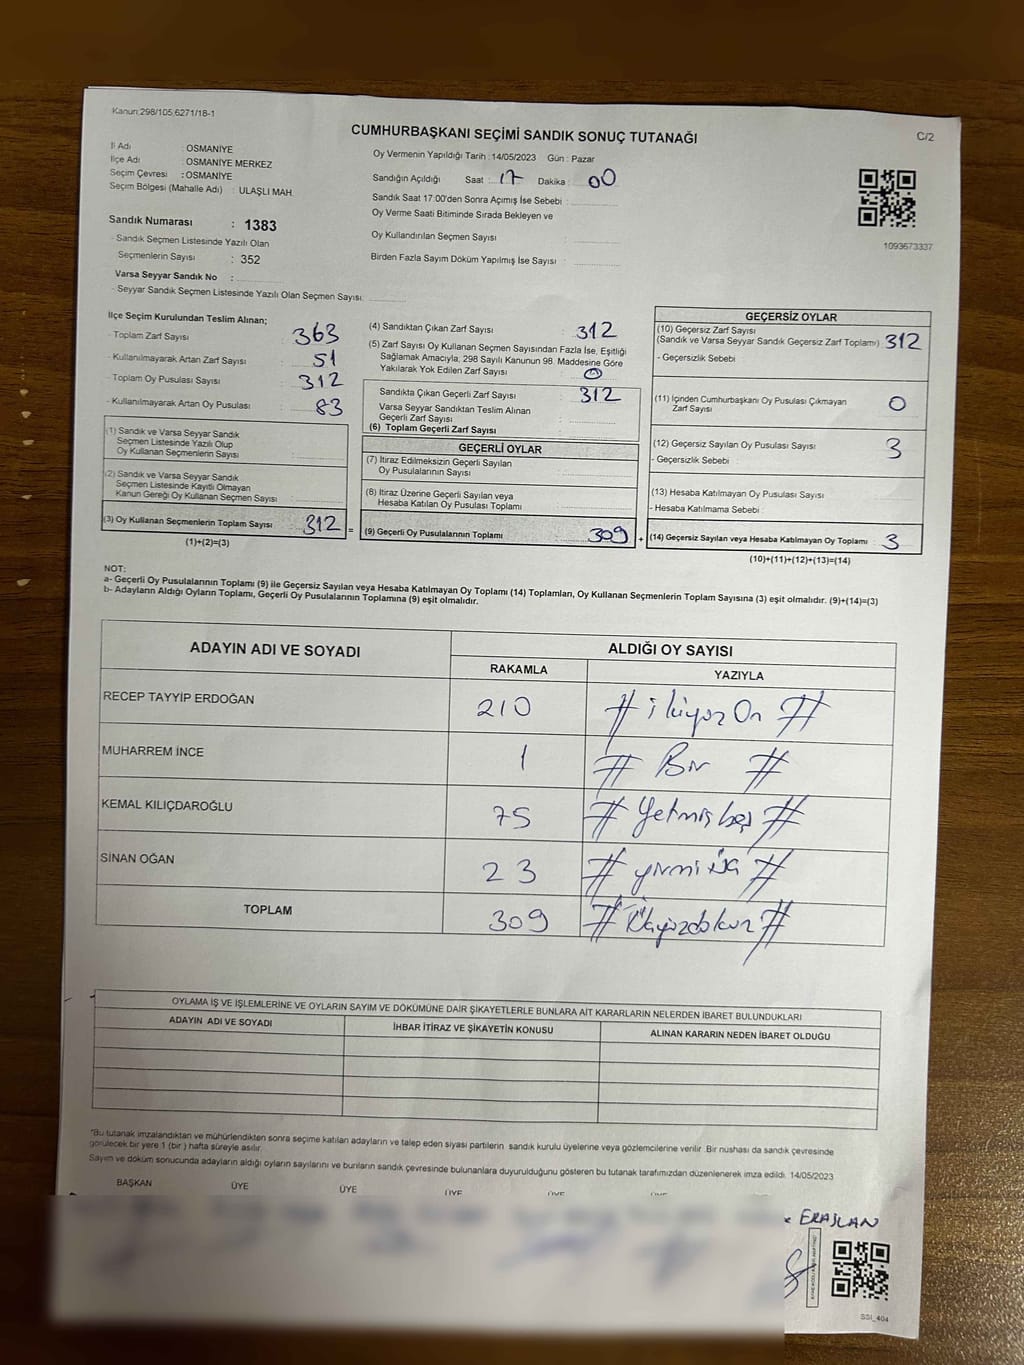 Kanun 298/105,6271/18-1
CUMHURBAŞKANI SEÇİMİ SANDIK SONUÇ TUTANAĞI
C/2
İl Adı : OSMANİYE
İlçe Adı : OSMANİYE MERKEZ
Seçim Çevresi : OSMANİYE
Seçim Bölgesi (Mahalle Adı) : ULAŞLI MAH.
Oy Vermenin Yapıldığı Tarih : 14/05/2023 Gün : Pazar
Sandığın Açıldığı Saat : 17 Dakika : 00
Sandık Saat 17:00'den Sonra Açımış İse Sebebi :
Oy Verme Saati Bitiminde Sırada Bekleyen ve
Oy Kullandırılan Seçmen Sayısı :
Birden Fazla Sayım Döküm Yapılmış İse Sayısı :
1093673337
Sandık Numarası : 1383
- Sandık Seçmen Listesinde Yazılı Olan
Seçmenlerin Sayısı : 352
Varsa Seyyar Sandık No :
- Seyyar Sandık Seçmen Listesinde Yazılı Olan Seçmen Sayısı:
İlçe Seçim Kurulundan Teslim Alınan;
- Toplam Zarf Sayısı : 363
- Kullanılmayarak Artan Zarf Sayısı : 51
- Toplam Oy Pusulası Sayısı : 312
- Kullanılmayarak Artan Oy Pusulası : 83
(1) Sandık ve Varsa Seyyar Sandık
Seçmen Listesinde Yazılı Olup
Oy Kullanan Seçmenlerin Sayısı
(2) Sandık ve Varsa Seyyar Sandık
Seçmen Listesinde Kayıtlı Olmayan
Kanun Gereği Oy Kullanan Seçmen Sayısı :
(3) Oy Kullanan Seçmenlerin Toplam Sayısı 312 =
(1)+(2)=(3)
(4) Sandıktan Çıkan Zarf Sayısı : 312
(5) Zarf Sayısı Oy Kullanan Seçmen Sayısından Fazla İse, Eşitliği
Sağlamak Amacıyla, 298 Sayılı Kanunun 98. Maddesine Göre
Yakılarak Yok Edilen Zarf Sayısı : 0
Sandıkta Çıkan Geçerli Zarf Sayısı : 312
Varsa Seyyar Sandıktan Teslim Alınan
Geçerli Zarf Sayısı :
(6) Toplam Geçerli Zarf Sayısı
GEÇERLİ OYLAR
(7) İtiraz Edilmeksizin Geçerli Sayılan
Oy Pusulalarının Sayısı
(8) İtiraz Üzerine Geçerli Sayılan veya
Hesaba Katılan Oy Pusulası Toplamı
(9) Geçerli Oy Pusulalarının Toplamı 309 +
GEÇERSİZ OYLAR
(10) Geçersiz Zarf Sayısı
(Sandık ve Varsa Seyyar Sandık Geçersiz Zarf Toplamı) 312
- Geçersizlik Sebebi
(11) İçinden Cumhurbaşkanı Oy Pusulası Çıkmayan
Zarf Sayısı 0
(12) Geçersiz Sayılan Oy Pusulası Sayısı : 3
- Geçersizlik Sebebi
(13) Hesaba Katılmayan Oy Pusulası Sayısı
- Hesaba Katılmama Sebebi
(14) Geçersiz Sayılan veya Hesaba Katılmayan Oy Toplamı : 3
(10)+(11)+(12)+(13)=(14)
NOT:
a- Geçerli Oy Pusulalarının Toplamı (9) ile Geçersiz Sayılan veya Hesaba Katılmayan Oy Toplamı (14) Toplamları, Oy Kullanan Seçmenlerin Toplam Sayısına (3) eşit olmalıdır. (9)+(14)=(3)
b- Adayların Aldığı Oyların Toplamı, Geçerli Oy Pusulalarının Toplamına (9) eşit olmalıdır.
ADAYIN ADI VE SOYADI ALDIĞI OY SAYISI
RAKAMLA YAZIYLA
RECEP TAYYİP ERDOĞAN 210 # ikiyüz On #
MUHARREM İNCE 1 # Bir #
KEMAL KILIÇDAROĞLU 75 # Yetmiş beş #
SİNAN OĞAN 23 # yirmi üç #
TOPLAM 309 # Üçyüzdokuz #
OYLAMA İŞ VE İŞLEMLERİNE VE OYLARIN SAYIM VE DÖKÜMÜNE DAİR ŞİKAYETLERLE BUNLARA AİT KARARLARIN NELERDEN İBARET BULUNDUKLARI
ADAYIN ADI VE SOYADI İHBAR İTİRAZ VE ŞİKAYETİN KONUSU ALINAN KARARIN NEDEN İBARET OLDUĞU
*Bu tutanak imzalandıktan ve mühürlendikten sonra seçime katılan adayların ve talep eden siyasi partilerin sandık kurulu üyelerine veya gözlemcilerine verilir. Bir nushası da sandık çevresinde
görülecek bir yere 1 (bir ) hafta süreyle asılır.
Sayım ve döküm sonucunda adayların aldığı oyların sayılarını ve bunların sandık çevresinde bulunanlara duyurulduğunu gösteren bu tutanak tarafımızdan düzenlenerek imza edildi. 14/05/2023
BAŞKAN ÜYE ÜYE ÜYE ÜYE ÜYE
ERASLAN
SSI_404